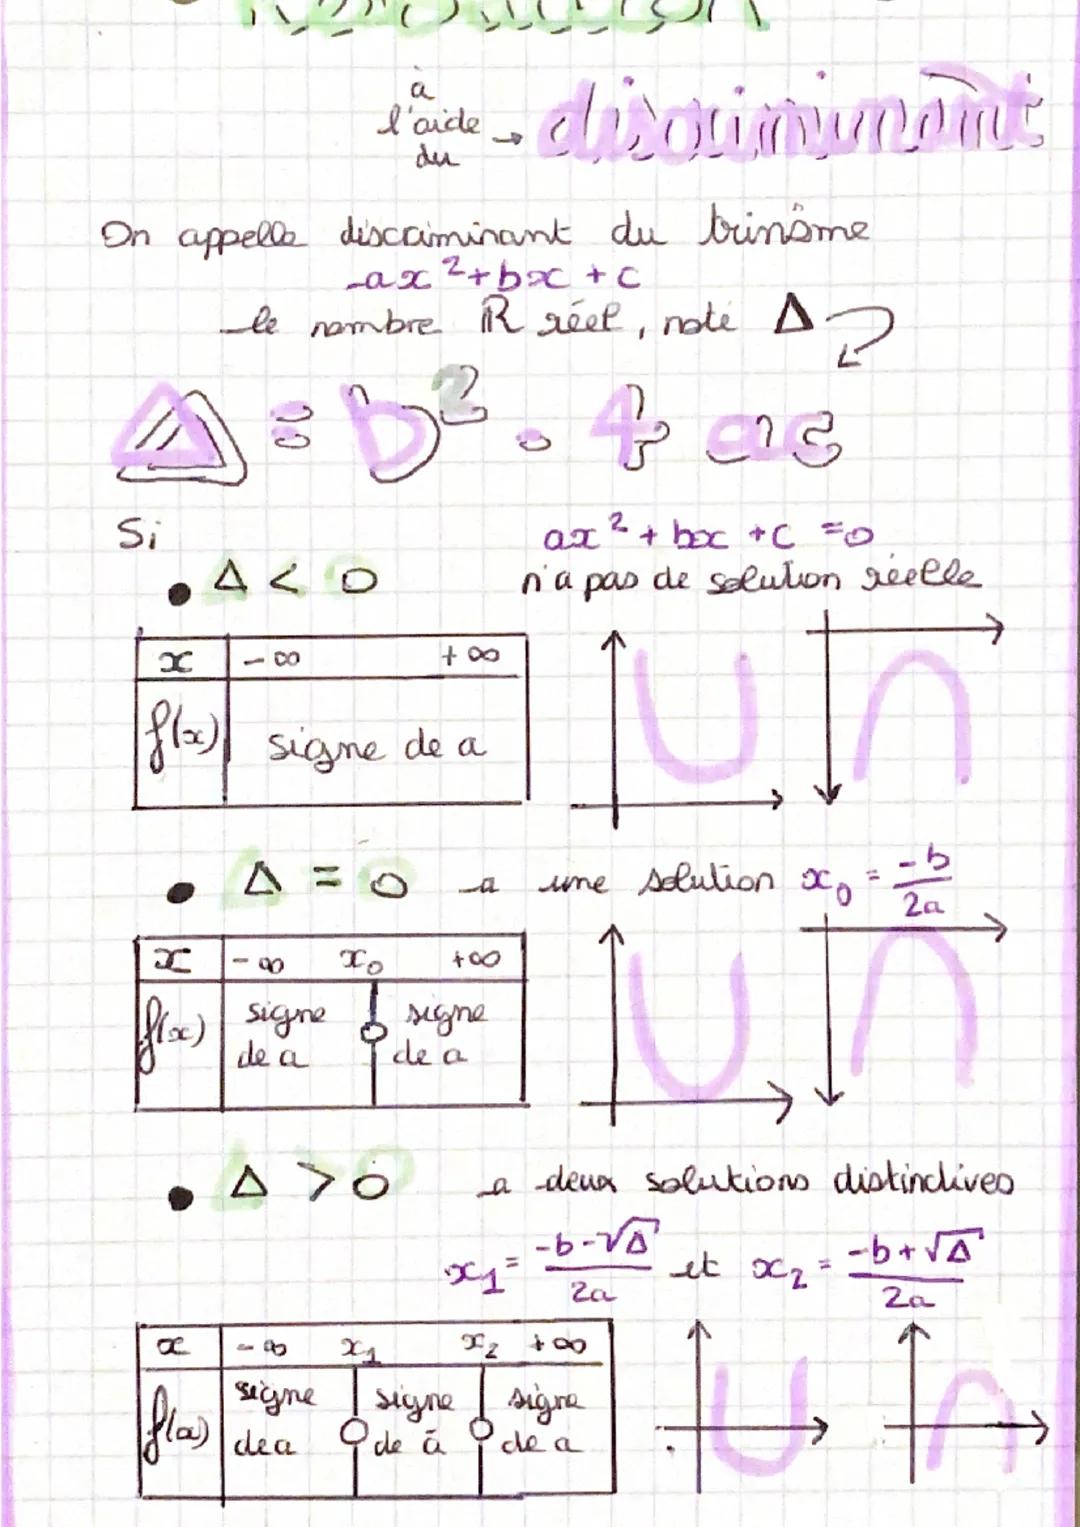 à
l'aide →
du
discriminant
On appelle discriminant du trinôme
ax² + bx + c
le nombre ℝ réel, noté Δ
Δ = b² - 4ac
Si
ax² + bx + c = 0
• Δ < 0
n'a pas de solution réelle
x -∞ +∞
f(x) signe de a
• Δ = 0 a une solution x₀ = -b/2a
x -∞ x₀ +∞
f(x) signe signe
de a de a
• Δ > 0 a deux solutions distinctives
x₁ = -b-√Δ/2a et x₂ = -b+√Δ/2a
x -∞ x₁ x₂ +∞
signe signe signe
f(x) de a de ā de a